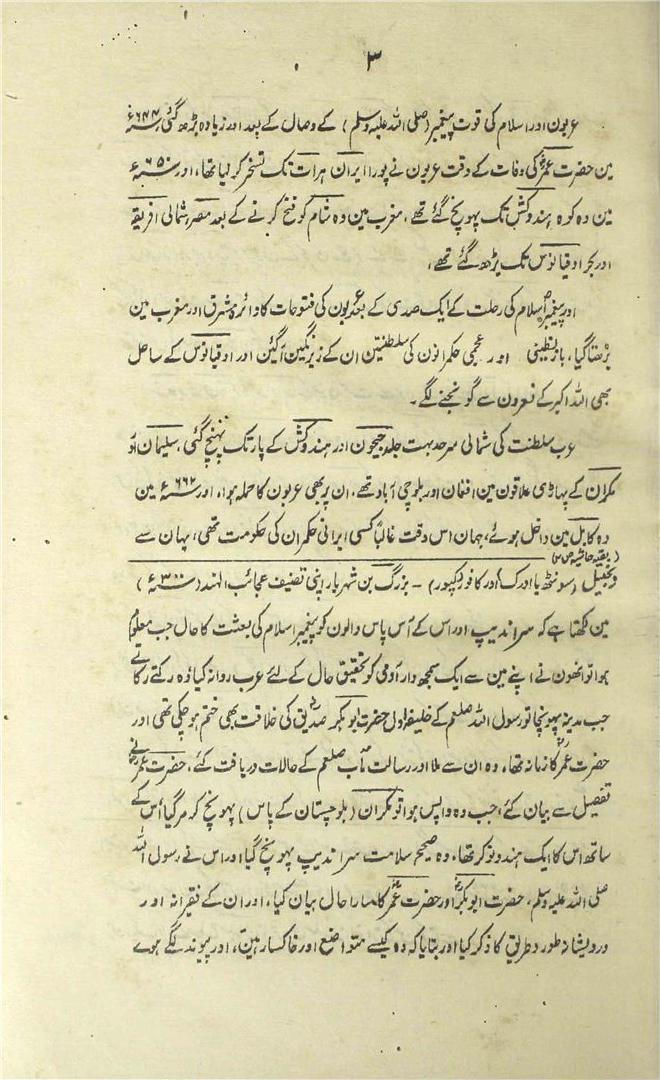 ۳
عربون اور اسلام کی قوت پیغمبر (صلی اللہ علیہ وسلم) کے وصال کے بعد اور زیادہ بڑھ گئی، ۶۴۴ء
مین حضرت عمرؓ کی وفات کے وقت عربون نے پورا ایران ہرات تک تسخیر کر لیا تھا، اور ۶۵۰ء
مین وہ کوہ ہندوکش تک پہونچ گئے تھے، مغرب مین وہ شام کو فتح کرنے کے بعد مصر، شمالی افریقہ
اور بحر اوقیانوس تک بڑھ گئے تھے،
اور پیغمبر اسلام کی رحلت کے ایک صدی کے بعد عربون کی فتوحات کا دائرہ مشرق اور مغرب مین
بڑھتا گیا، بازنطینی اور عجمی حکمرانون کی سلطنتین ان کے زیر نگین آگئین اور اوقیانوس کے ساحل
بھی اللہ اکبر کے نعرون سے گونجنے لگے۔
عرب سلطنت کی شمالی سرحد بہت جلد جیحون اور ہندوکش کے پار تک پہنچ گئی، سلیمان اور
مکران کے پہاڑی علاقون مین افغان اور بلوچی آباد تھے، ان پر بھی عربون کا حملہ ہوا، اور ۶۶۲ء مین
وہ کابل مین داخل ہوئے، جہان اس وقت غالباً کسی ایرانی حکمران کی حکومت تھی، یہان سے
(بقیہ حاشیہ ص ۲)
زنجبیل (سونٹھ یا ادرک) اور کافور (کپور) – بزرگ بن شہریار اپنی تصنیف عجائب الہند (۳۰۰ھ)
مین لکھتا ہے کہ سراندیپ اور اس کے آس پاس والون کو پیغمبر اسلام کی بعثت کا حال جب معلوم
ہوا تو انھون نے اپنے مین سے ایک سمجھ دار آدمی کو تحقیق حال کے لئے عرب روانہ کیا، وہ رکتے رکاتے
جب مدینہ پہونچا تو رسول اللہ صلعم کے خلیفہ اول حضرت ابوبکر صدیقؓ کی خلافت بھی ختم ہو چکی تھی اور
حضرت عمرؓ کا زمانہ تھا، وہ ان سے ملا اور رسالت مآب صلعم کے حالات دریافت کئے، حضرت عمرؓ نے
تفصیل سے بیان کئے، جب وہ واپس ہوا تو مکران (بلوچستان کے پاس) پہونچ کر مر گیا، اس کے
ساتھ اس کا ایک ہندو نوکر تھا، وہ صحیح سلامت سراندیپ پہونچ گیا اور اس نے رسول اللہ
صلی اللہ علیہ وسلم، حضرت ابوبکرؓ اور حضرت عمرؓ کا سارا حال بیان کیا، اور ان کے فقیرانہ اور
درویشانہ طور و طریق کا ذکر کیا اور بتایا کہ وہ کیسے متواضع اور خاکسار ہین، اور پیوند لگے ہوے